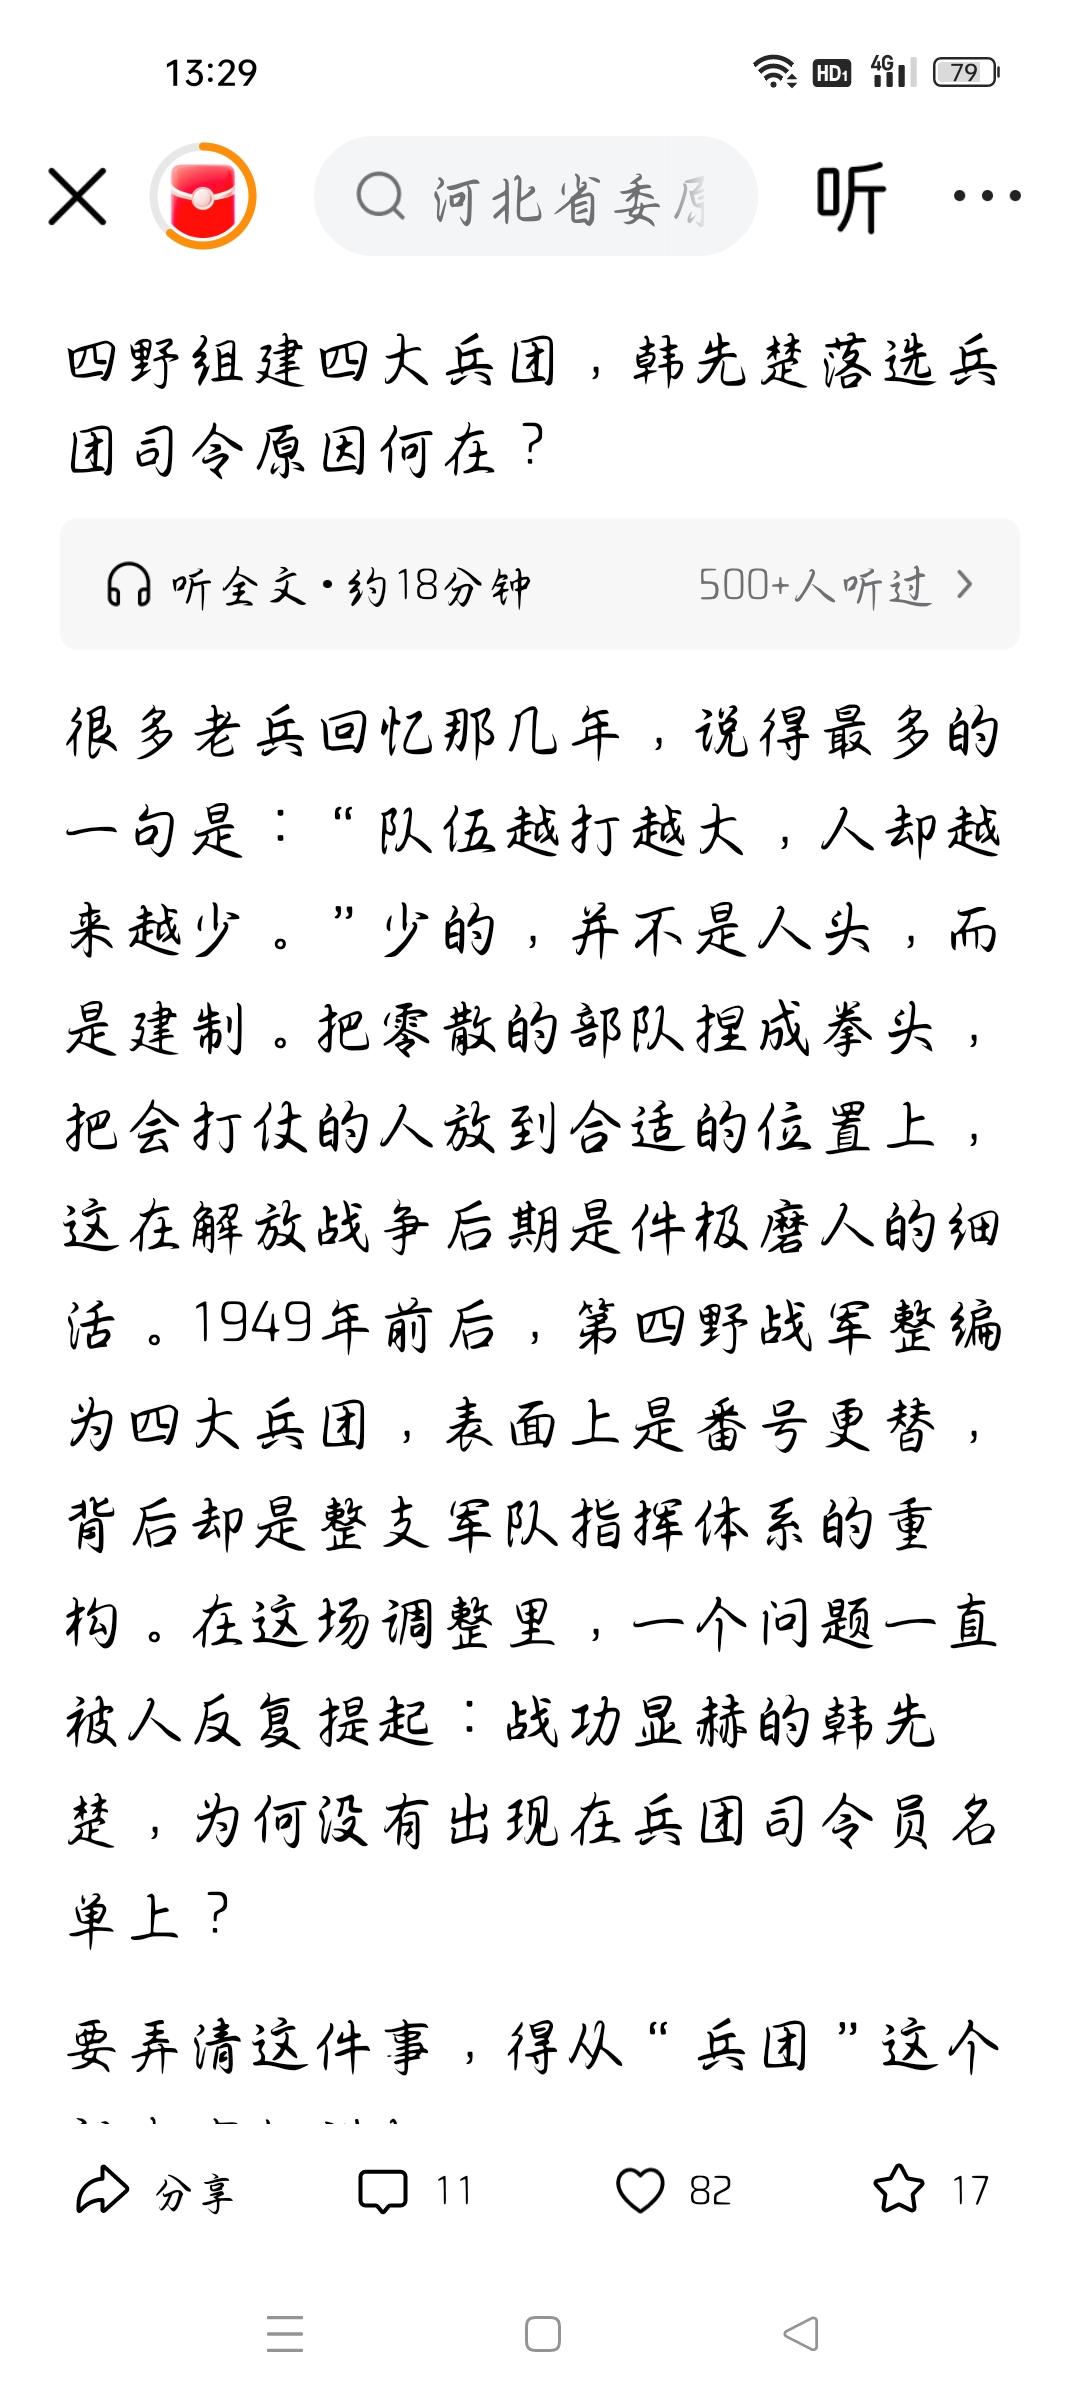 13:29
HD1
4G
79
河北省委
听
四野组建四大兵团，韩先楚落选兵
团司令原因何在？
听全文·约18分钟
500+人听过
很多老兵回忆那几年，说得最多的
一句是：“队伍越打越大，人却越
来越少。”少的，并不是人头，而
是建制。把零散的部队捏成拳头，
把会打仗的人放到合适的位置上，
这在解放战争后期是件极磨人的细
活。1949年前后，第四野战军整编
为四大兵团，表面上是番号更替，
背后却是整支军队指挥体系的重
构。在这场调整里，一个问题一直
被人反复提起：战功显赫的韩先
楚，为何没有出现在兵团司令员名
单上？
要弄清这件事，得从“兵团”这个
分享
11
82
17